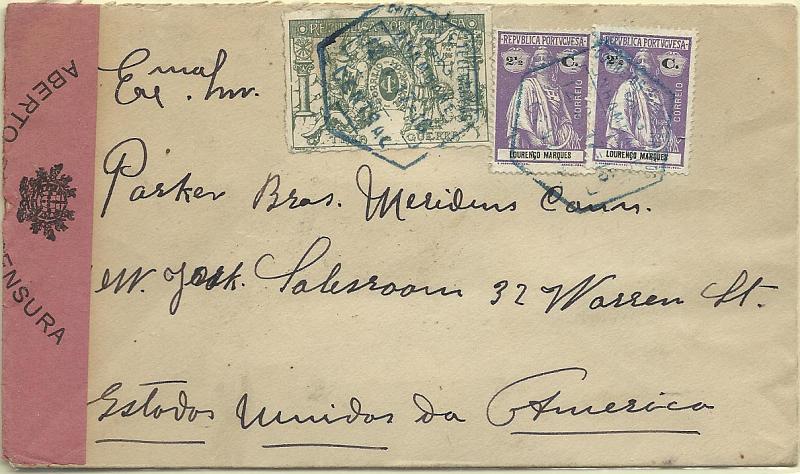 ABERTO
CENSURA
REPUBLICA PORTUGUESA
1
TAXO DE GUERRA
REPVBLICA PORTVGVESA
2½ C.
CORREIO
LOURENÇO MARQUES
REPVBLICA PORTVGVESA
2½ C.
CORREIO
LOURENÇO MARQUES
Exmo. Snr.
Parker Bros. Meridens Conn.
N. York. Salesroom 32 Warren St.
Estados Unidos da America